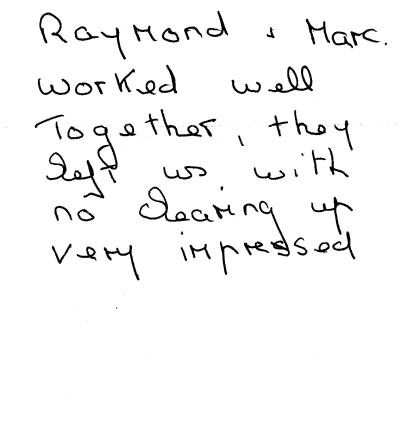 Raymond & Marc.
worked well
Together, they
left us with
no clearing up
very impressed